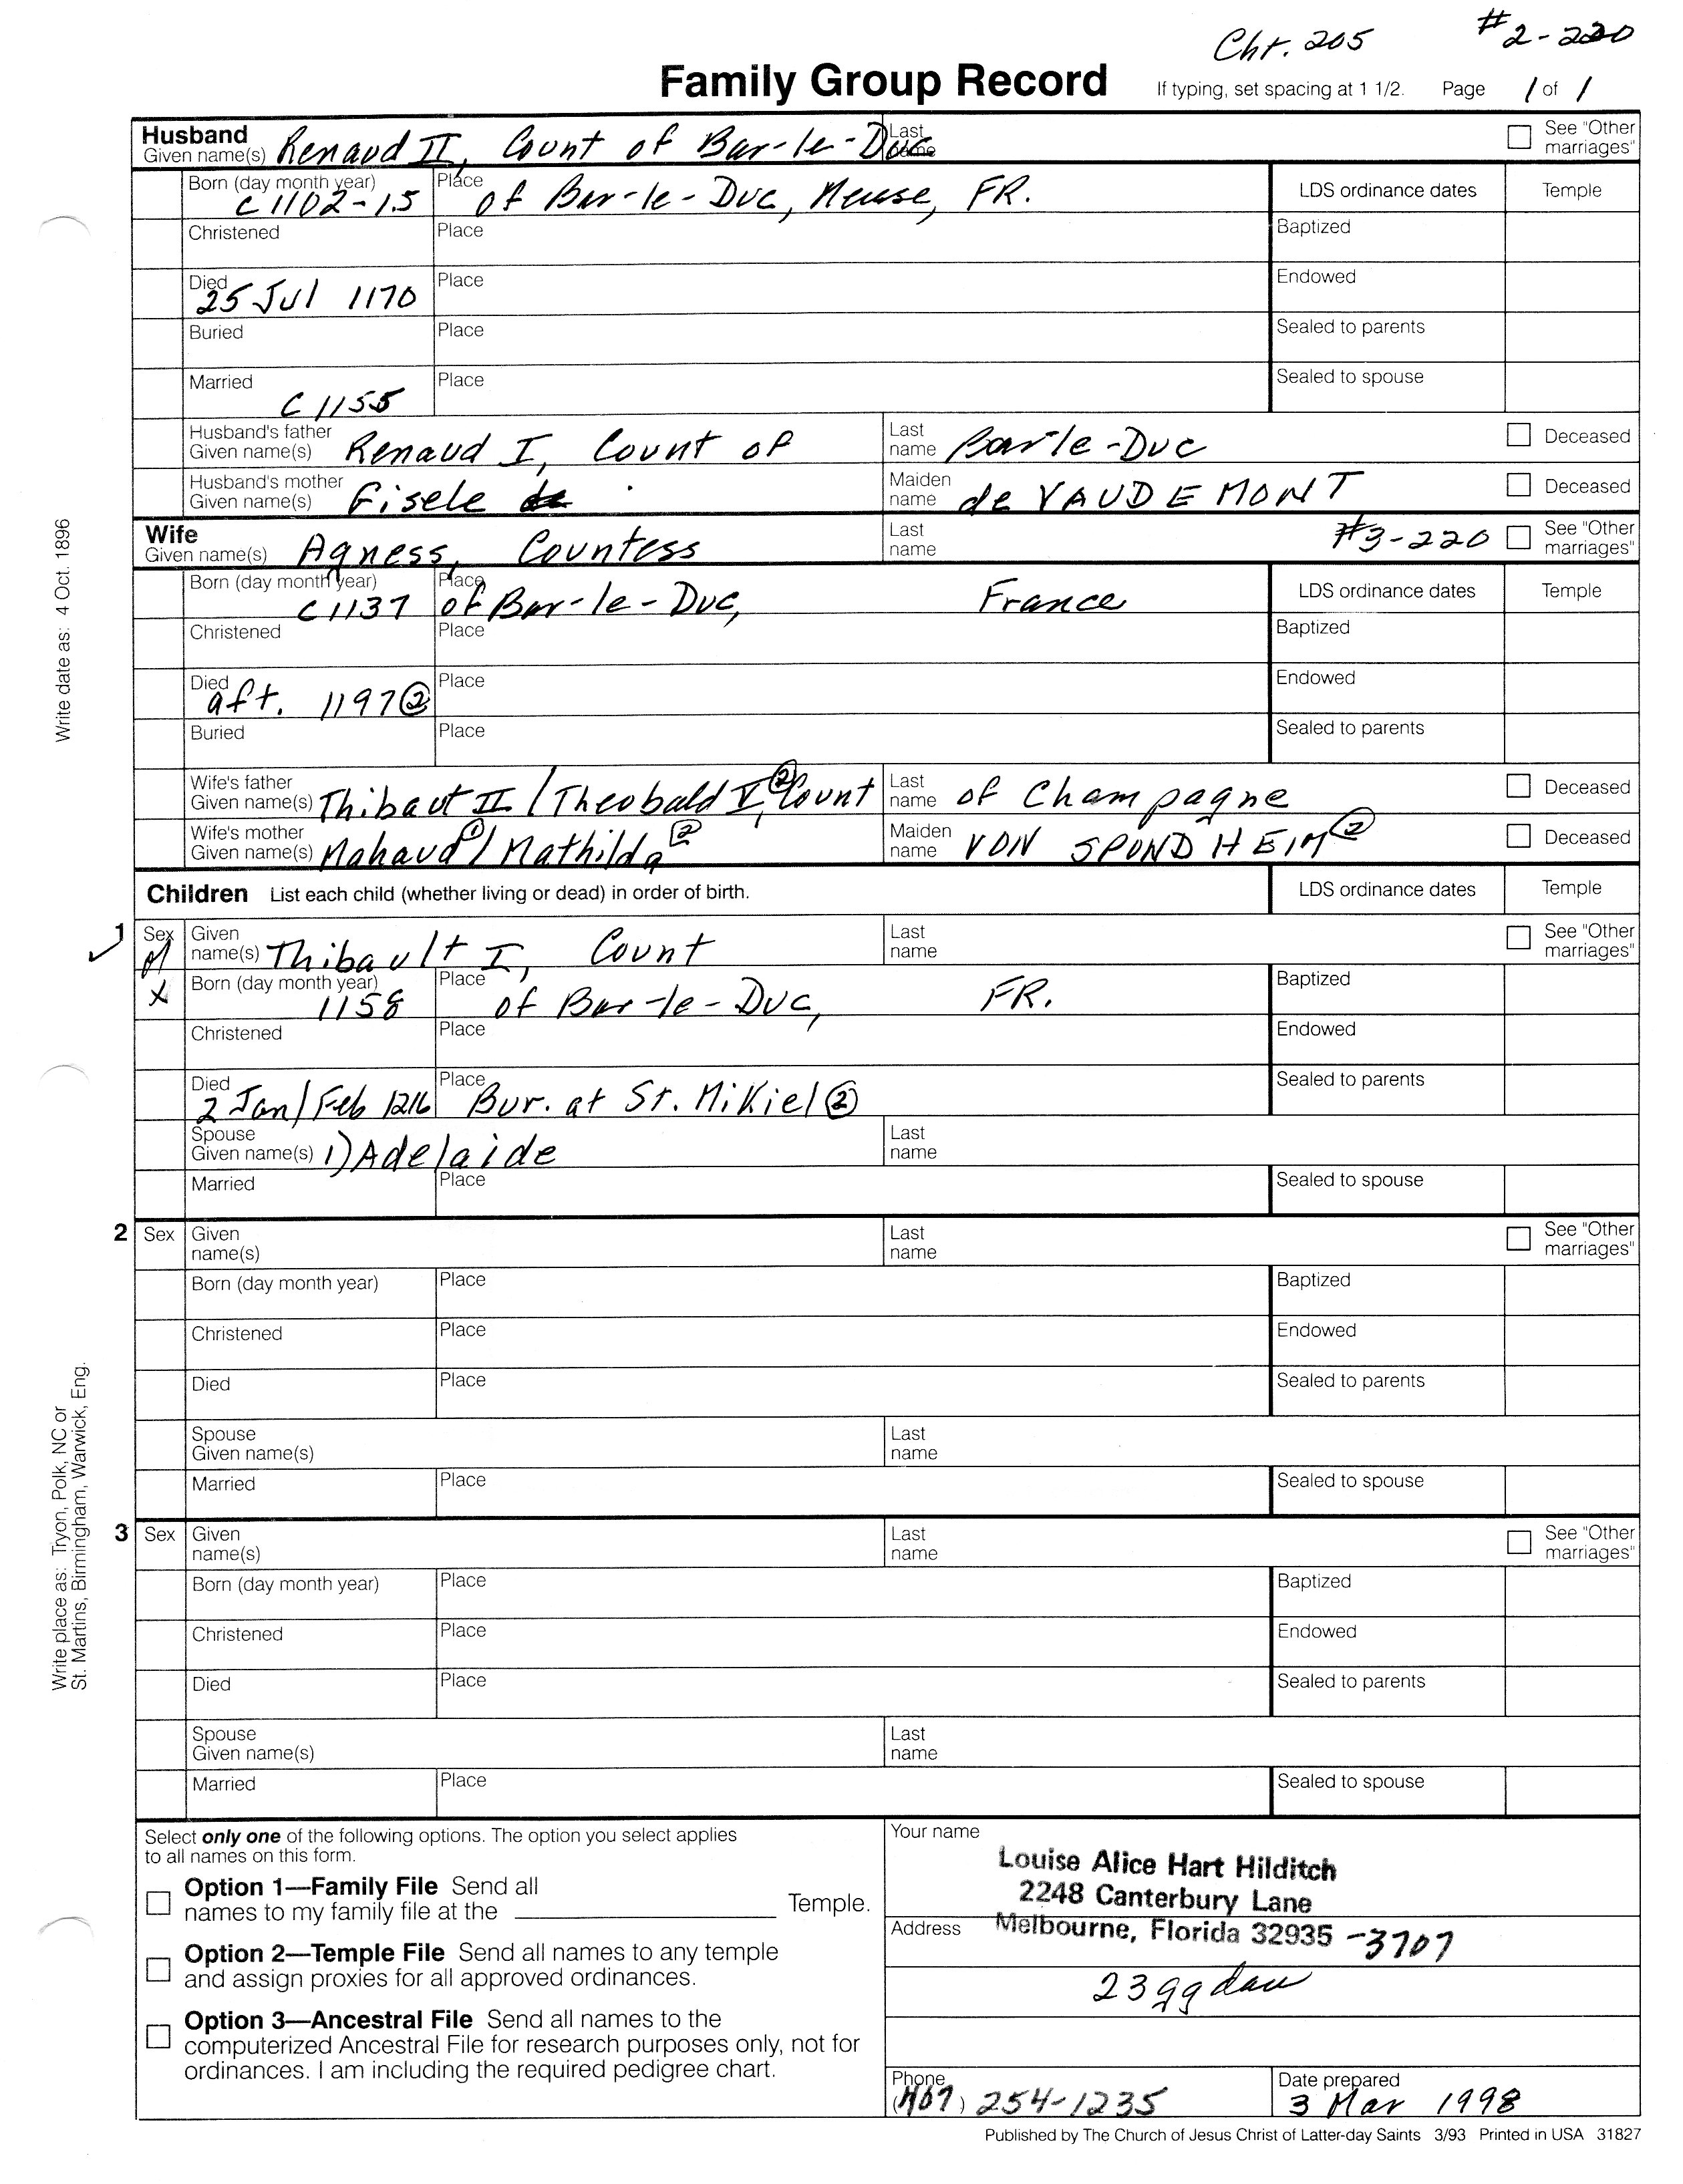 Cht. 205 #2-220
Family Group Record If typing, set spacing at 1 1/2. Page 1 of 1
Husband
Given name(s) Renaud II, Count of Bar-le-Duc Last name See "Other marriages"
Born (day month year) c 1102-15 Place of Bar-le-Duc, Meuse, FR. LDS ordinance dates Temple
Christened Place Baptized
Died 25 Jul 1170 Place Endowed
Buried Place Sealed to parents
Married c 1155 Place Sealed to spouse
Husband's father
Given name(s) Renaud I, Count of Last name Bar le-Duc Deceased
Husband's mother
Given name(s) Gisele de Maiden name de VAUDEMONT Deceased
Wife
Given name(s) Agness, Countess Last name #3-220 See "Other marriages"
Born (day month year) c 1137 Place of Bar-le-Duc, France LDS ordinance dates Temple
Christened Place Baptized
Died aft. 1197 (2) Place Endowed
Buried Place Sealed to parents
Wife's father
Given name(s) Thibaut II / Theobald V, (2) Count Last name of Champagne Deceased
Wife's mother
Given name(s) Mahaud (1) / Mathilda (2) Maiden name VON SPONDHEIM (2) Deceased
Children List each child (whether living or dead) in order of birth. LDS ordinance dates Temple
1 Sex M Given name(s) Thibault I, Count Last name See "Other marriages"
X Born (day month year) 1158 Place of Bar-le-Duc, FR. Baptized
Christened Place Endowed
Died 2 Jan/Feb 1216 Place Bur. at St. Mikiel (2) Sealed to parents
Spouse
Given name(s) 1) Adelaide Last name
Married Place Sealed to spouse
2 Sex Given name(s) Last name See "Other marriages"
Born (day month year) Place Baptized
Christened Place Endowed
Died Place Sealed to parents
Spouse
Given name(s) Last name
Married Place Sealed to spouse
3 Sex Given name(s) Last name See "Other marriages"
Born (day month year) Place Baptized
Christened Place Endowed
Died Place Sealed to parents
Spouse
Given name(s) Last name
Married Place Sealed to spouse
Write date as: 4 Oct. 1896
Write place as: Tryon, Polk, NC or
St. Martins, Birmingham, Warwick, Eng.
Select only one of the following options. The option you select applies
to all names on this form.
Option 1—Family File Send all
names to my family file at the Temple.
Option 2—Temple File Send all names to any temple
and assign proxies for all approved ordinances.
Option 3—Ancestral File Send all names to the
computerized Ancestral File for research purposes only, not for
ordinances. I am including the required pedigree chart.
Your name
Louise Alice Hart Hilditch
2248 Canterbury Lane
Address Melbourne, Florida 32935 -3707
23 gg dau
Phone
(407) 254-1235
Date prepared
3 Mar 1998
Published by The Church of Jesus Christ of Latter-day Saints 3/93 Printed in USA 31827